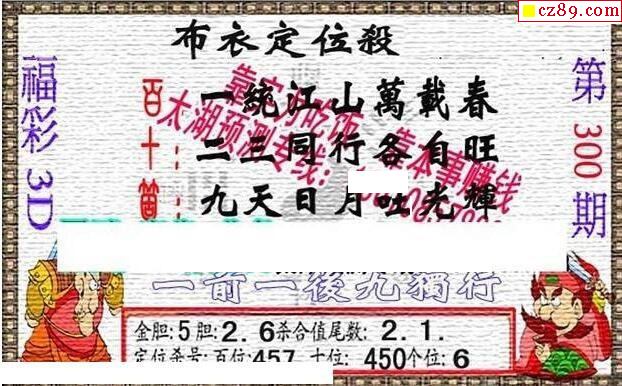 cz89.com
布衣定位殺
福彩3D
第300期
百: 一統江山萬載春
十: 二三同行各自旺
箇: 九天日月吐光輝
靠实力吃饭 靠本事赚钱
太湖预测专线:
一前一後九獨行
金胆:5胆:2.6杀合值尾数:2.1.
定位杀号:百位:457 十位:450个位:6